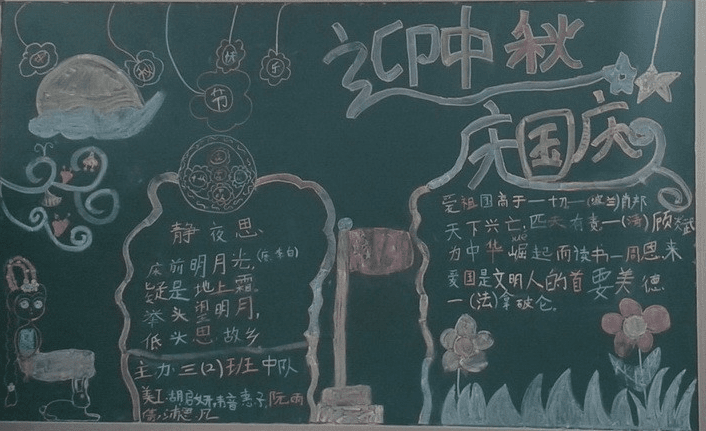 中
秋
快
乐
节
迎中秋
庆国庆
静夜思
床前明月光，(李白)
疑是地上霜。
举头望明月，
低头思故乡
主办三(2)班中队
美工:胡启妍,
爱祖国高于一切—(波兰)肖邦
天下兴亡,匹夫有责—(清)顾炎武
为中华崛起而读书—周恩来
爱国是文明人的首要美德
—(法)拿破仑。